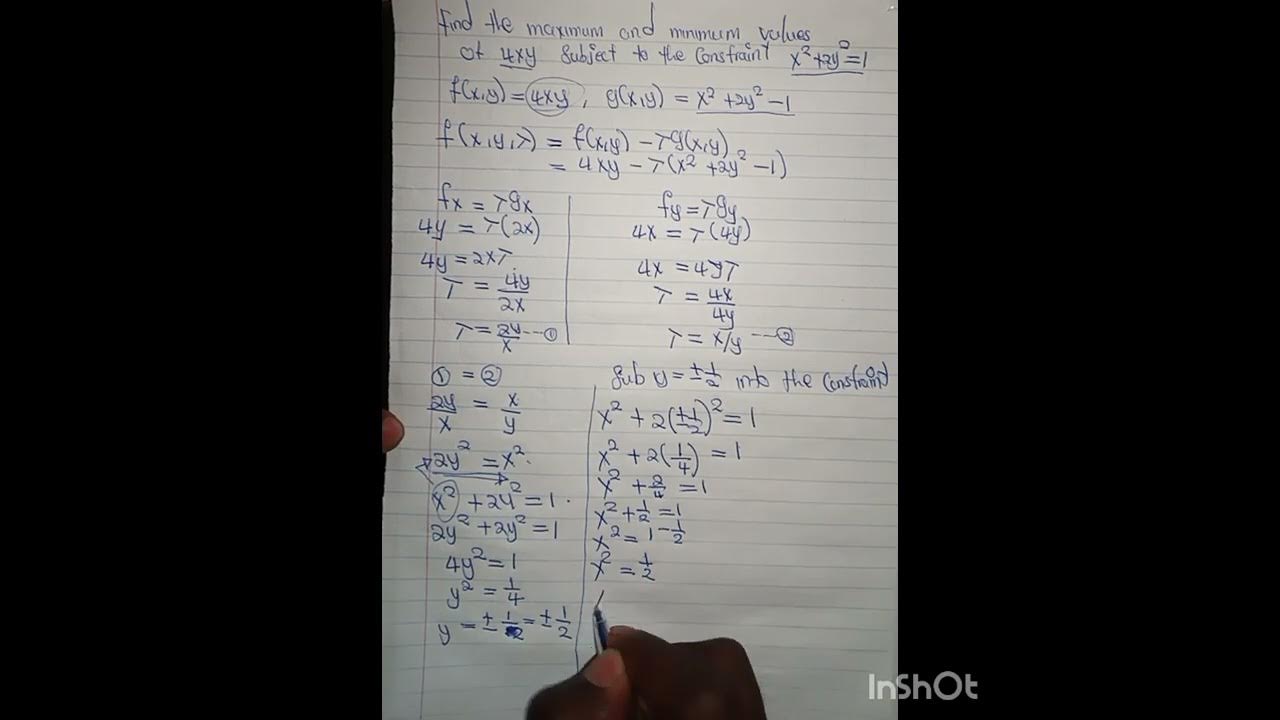 Find the maximum and minimum values
of 4xy subject to the constraint x² + 2y² = 1
f(x,y) = 4xy, g(x,y) = x² + 2y² - 1
f(x,y,τ) = f(x,y) - τg(x,y)
= 4xy - τ(x² + 2y² - 1)
fx = τgx
4y = τ(2x)
4y = 2xτ
τ = 4y/2x
τ = 2y/x ---①
fy = τgy
4x = τ(4y)
4x = 4yτ
τ = 4x/4y
τ = x/y ---②
① = ②
2y/x = x/y
2y² = x².
x² + 2y² = 1.
2y² + 2y² = 1
4y² = 1
y² = 1/4
y = ± 1/2 = ± 1/2
Sub y = ± 1/2 into the constraint
x² + 2(± 1/2)² = 1
x² + 2(1/4) = 1
x² + 2/4 = 1
x² + 1/2 = 1
x² = 1 - 1/2
x² = 1/2
InShOt